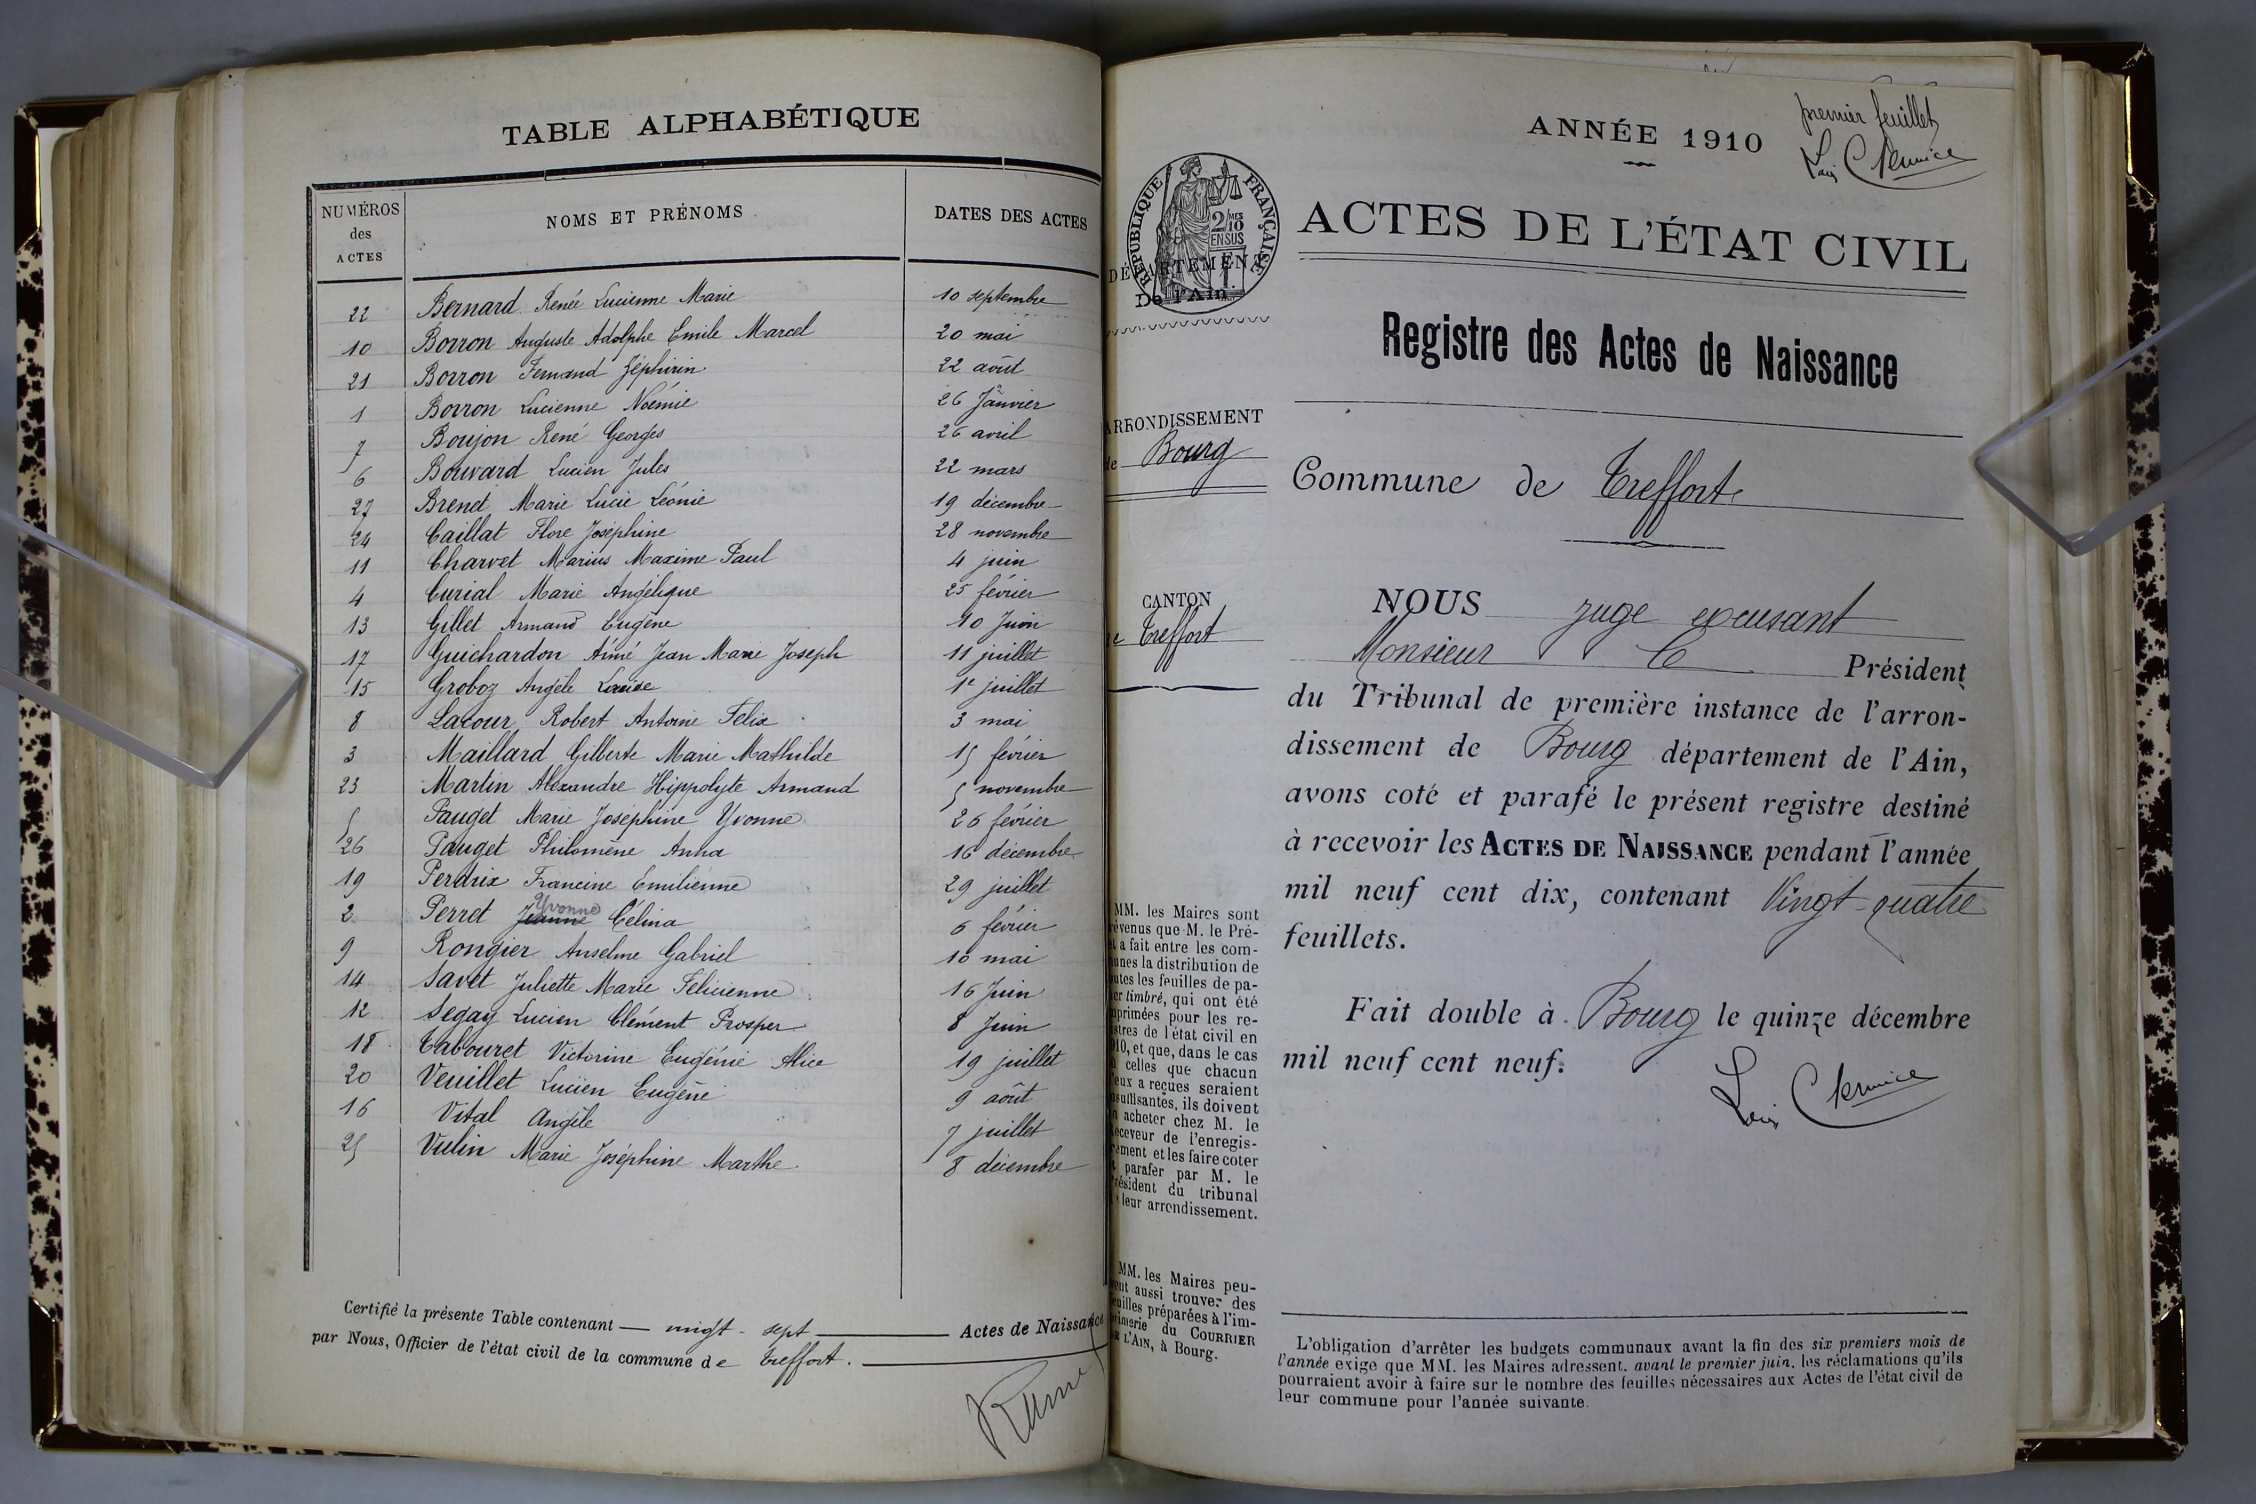 TABLE ALPHABÉTIQUE
NUMÉROS
des
ACTES
NOMS ET PRÉNOMS
DATES DES ACTES
22 Bernard Renée Lucienne Marie 10 septembre
10 Borron Auguste Adolphe Emile Marcel 20 mai
21 Borron Fernand Zéphirin 22 août
1 Borron Lucienne Noémie 26 Janvier
7 Boujon René Georges 26 avril
6 Bouvard Lucien Jules 22 mars
27 Brenet Marie Lucie Léonie 19 décembre
24 Caillat Flore Joséphine 28 novembre
11 Charvet Marius Maxime Paul 4 juin
4 Curial Marie Angélique 25 février
13 Gillet Armand Eugène 10 Juin
17 Guichardon Aimé Jean Marie Joseph 11 juillet
15 Groboz Angèle Louise 1er juillet
8 Lacour Robert Antoine Félix 3 mai
3 Maillard Gilberte Marie Mathilde 15 février
23 Martin Alexandre Hippolyte Armand 5 novembre
5 Pauget Marie Joséphine Yvonne 26 février
26 Pauget Philomène Anna 16 décembre
19 Perdrix Francine Emilienne 29 juillet
Yvonne
2 Perret Jeanne Célina 6 février
9 Rongier Anselme Gabriel 10 mai
14 Savet Juliette Marie Félicienne 16 Juin
12 Segay Lucien Clément Prosper 8 Juin
18 Tabouret Victorine Eugénie Alice 19 juillet
20 Veuillet Lucien Eugène 9 août
16 Vital Angèle 7 juillet
25 Vulin Marie Joséphine Marthe 8 décembre
Certifié la présente Table contenant vingt-sept Actes de Naissance
par Nous, Officier de l'état civil de la commune de Treffort.
premier feuillet
ANNÉE 1910
RÉPUBLIQUE FRANÇAISE
2/10
MES
EN SUS
ACTES DE L'ÉTAT CIVIL
DÉPARTEMENT
De l'Ain.
Registre des Actes de Naissance
ARRONDISSEMENT
de Bourg
Commune de Treffort
CANTON
de Treffort
NOUS juge excusant
Monsieur le Président
du Tribunal de première instance de l'arron-
dissement de Bourg département de l'Ain,
avons coté et parafé le présent registre destiné
à recevoir les ACTES DE NAISSANCE pendant l'année
mil neuf cent dix, contenant Vingt-quatre
feuillets.
Fait double à Bourg le quinze décembre
mil neuf cent neuf.
MM. les Maires sont
prévenus que M. le Pré-
fet a fait entre les com-
munes la distribution de
toutes les feuilles de pa-
pier timbré, qui ont été
imprimées pour les re-
gistres de l'état civil en
1910, et que, dans le cas
où celles que chacun
d'eux a reçues seraient
insuffisantes, ils doivent
en acheter chez M. le
Receveur de l'enregis-
trement et les faire coter
et parafer par M. le
Président du tribunal
de leur arrondissement.
MM. les Maires peu-
vent aussi trouver des
feuilles préparées à l'im-
primerie du COURRIER
DE L'AIN, à Bourg.
L'obligation d'arrêter les budgets communaux avant la fin des six premiers mois de
l'année exige que MM. les Maires adressent, avant le premier juin, les réclamations qu'ils
pourraient avoir à faire sur le nombre des feuilles nécessaires aux Actes de l'état civil de
leur commune pour l'année suivante.